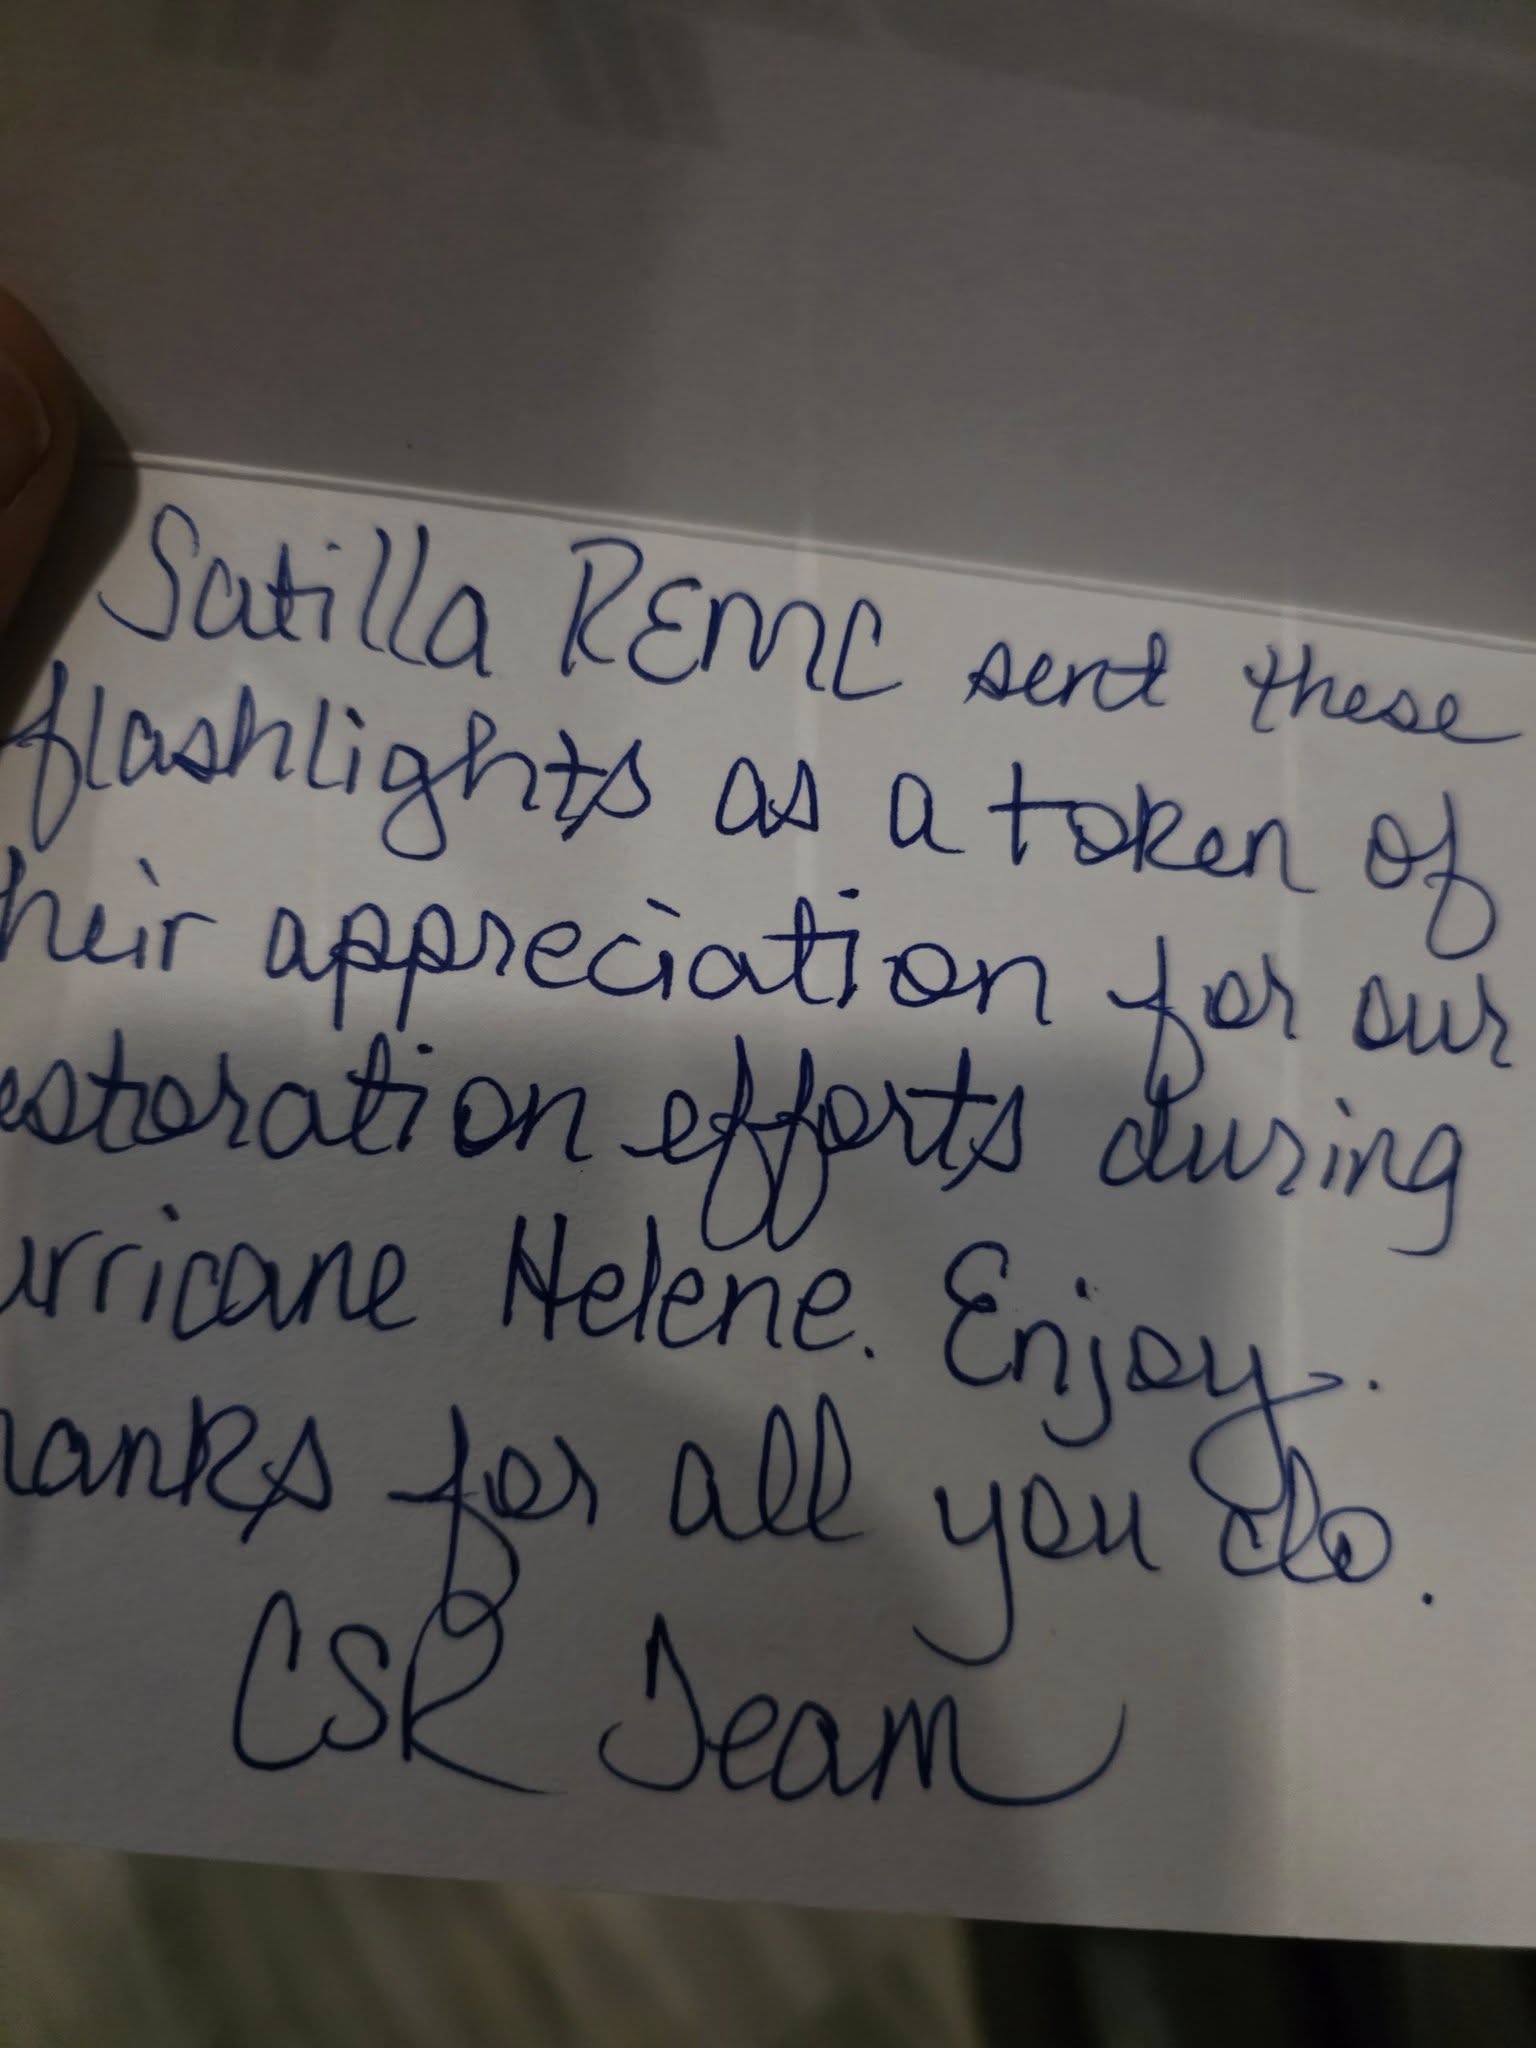 Satilla REMC sent these
flashlights as a token of
heir appreciation for our
estoration efforts during
urricane Helene. Enjoy.
hanks for all you do.
CSR Team